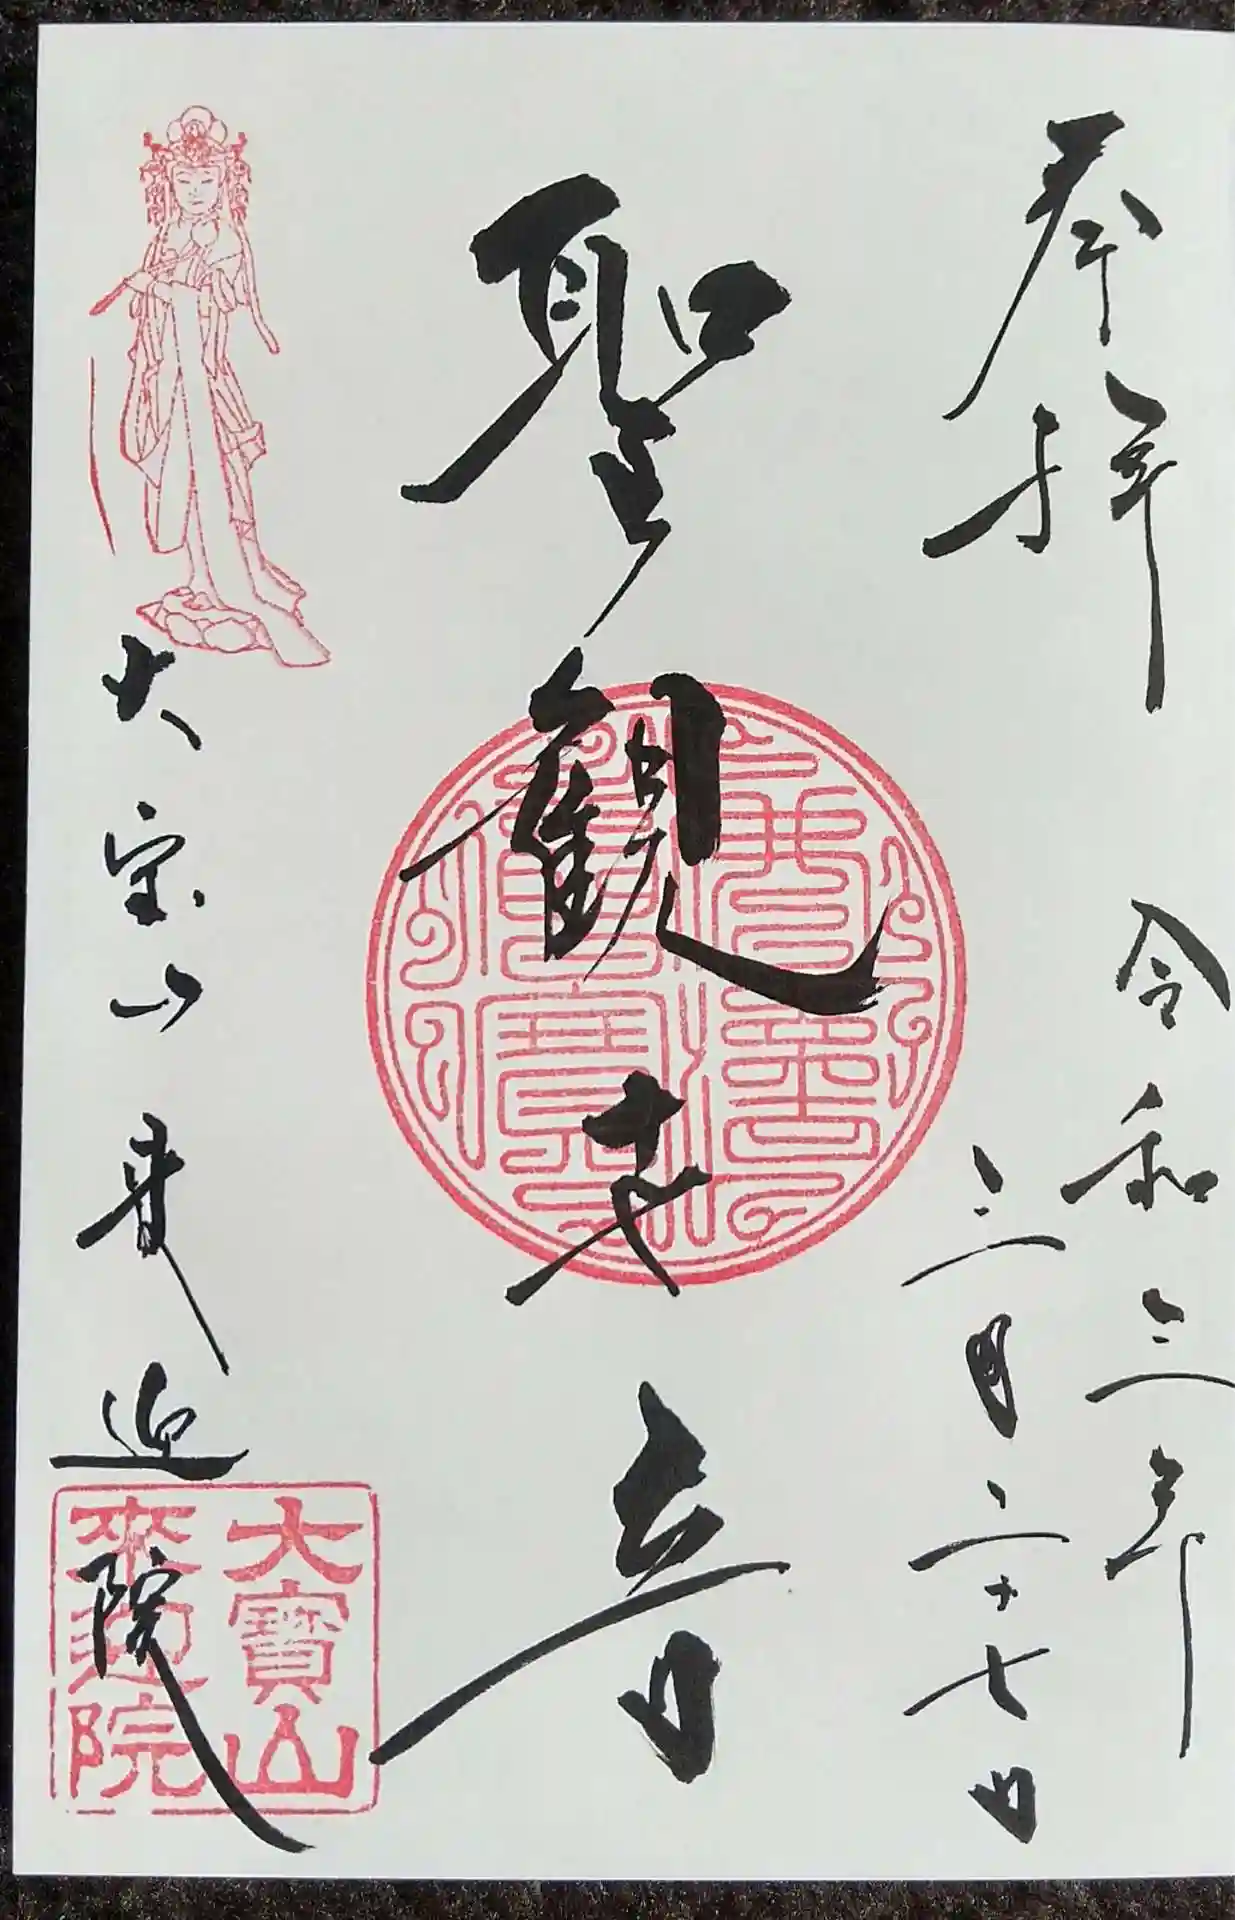 奉拝
令和三年
三月二十七日
聖観世音
大宝山来迎院
大寶山
來迎院